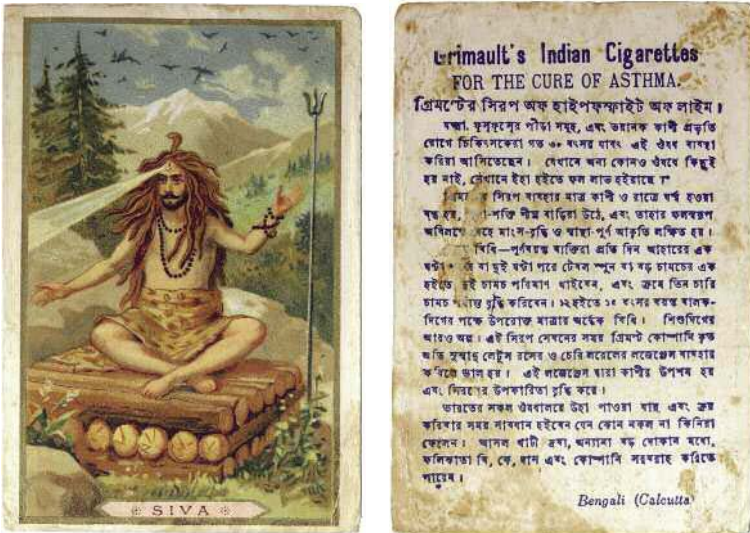 SIVA
Grimault's Indian Cigarettes
FOR THE CURE OF ASTHMA.
গ্রিমল্টের সিরপ অফ হাইপফস্ফাইট অফ লাইম।
যক্ষ্মা, ফুসফুসের পীড়া সমূহ, এবং ভয়ানক কাশী প্রভৃতি
রোগে চিকিৎসকেরা গত ৩০ বৎসর যাবৎ এই ঔষধ ব্যবস্থা
করিয়া আসিতেছেন। যেখানে অন্য কোনও ঔষধে কিছুই
হয় নাই, সেখানে ইহা হইতে ফল লাভ হইয়াছে।
সিরপ ব্যবহার মাত্র কাশী ও রাত্রে ঘর্ম হওয়া
বন্ধ হয়, শক্তি শীঘ্র বাড়িয়া উঠে, এবং তাহার ফলস্বরূপ
অবিলম্বে দেহে মাংস-বৃদ্ধি ও স্বাস্থ্য-পূর্ণ আকৃতি লক্ষিত হয়।
বিধি—পূর্ণবয়স্ক ব্যক্তিরা প্রতি দিন আহারের এক
ঘণ্টা বা দুই ঘণ্টা পরে টেবল স্পুন বা বড় চামচের এক
হইতে দুই চামচ পরিমাণ খাইবেন, এবং ক্রমে তিন চারি
চামচ পর্য্যন্ত বৃদ্ধি করিবেন। ১২ হইতে ১৫ বৎসর বয়স্ক বালক-
দিগের পক্ষে উপরোক্ত মাত্রার অর্দ্ধেক বিধি। শিশুদিগের
আরও অল্প। এই সিরপ সেবনের সময় গ্রিমল্ট কোম্পানি কৃত
অতি সুস্বাদু লেটুস রসের ও চেরি লরেলের লজেঞ্জেস ব্যবহার
করিলে ভাল হয়। এই লজেঞ্জেস দ্বারা কাশীর উপশম হয়
এবং সিরপের উপকারিতা বৃদ্ধি করে।
ভারতের সকল ঔষধালয়ে উহা পাওয়া যায়, এবং ক্রয়
করিবার সময় সাবধান হইবেন যেন কোন নকল না কিনিয়া
ফেলেন। আসল খাটী দ্রব্য, অন্যান্য বড় দোকান মধ্যে,
কলিকাতা বি, কে, পাল এবং কোম্পানি সরবরাহ করিতে
পারেন।
Bengali (Calcutta)